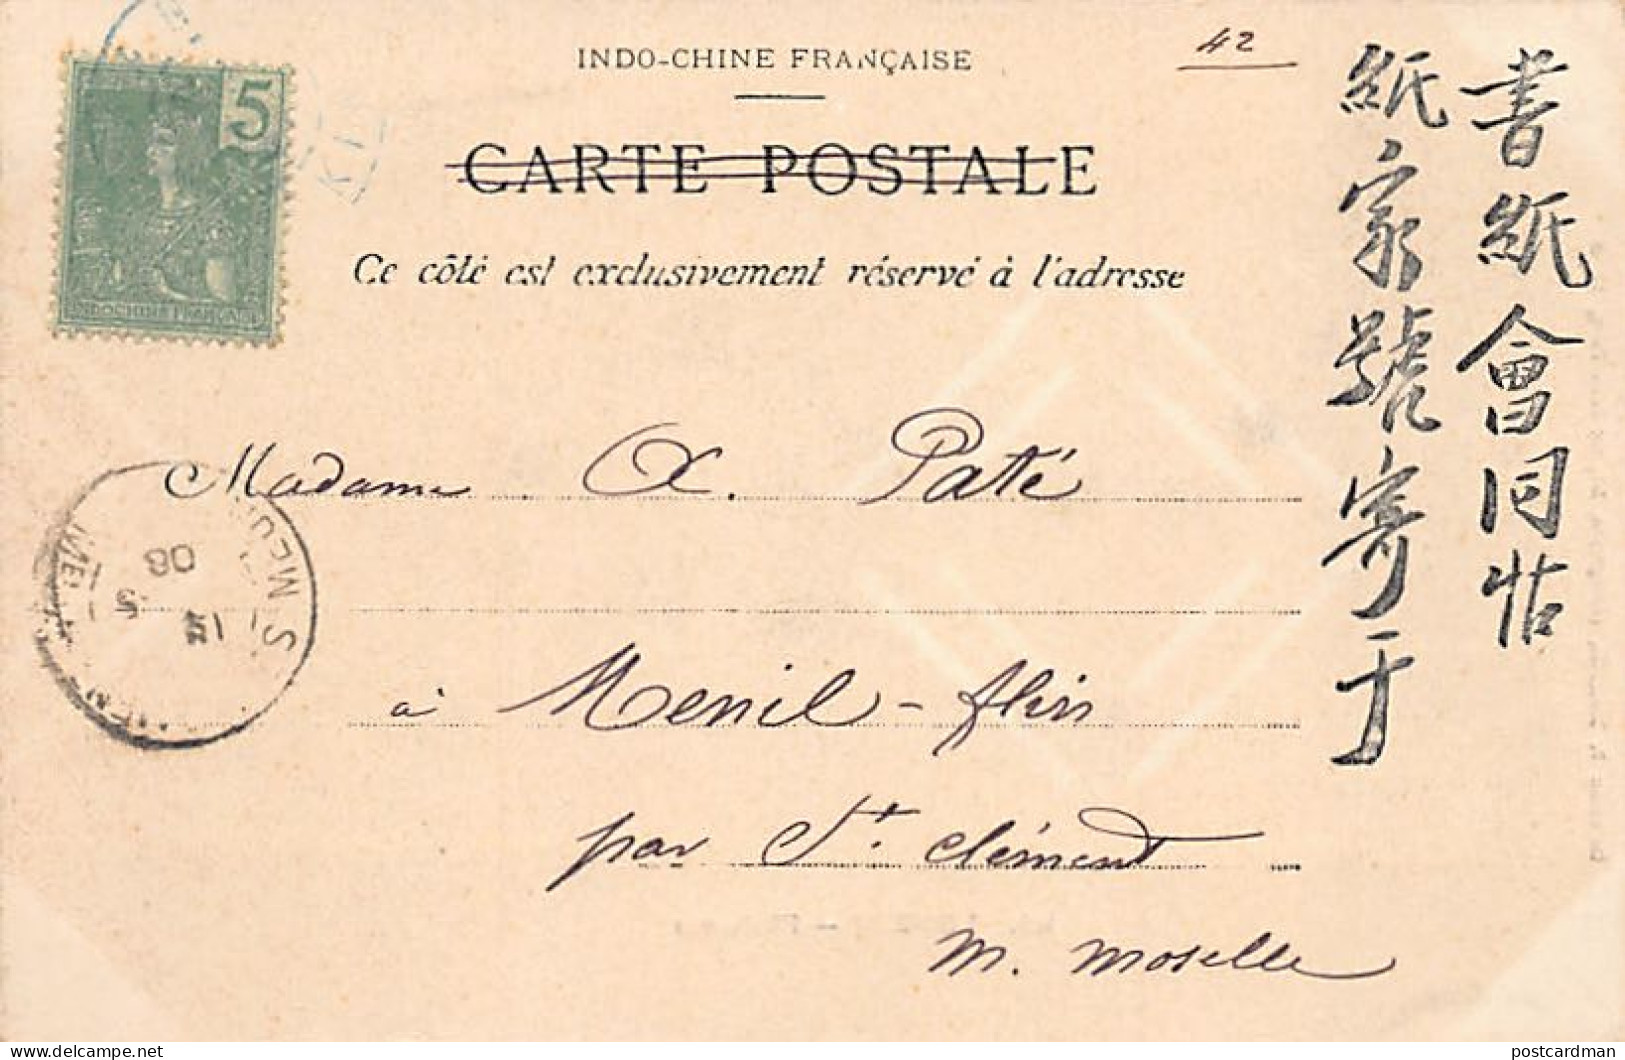 INDO-CHINE FRANÇAISE
42
5
INDOCHINE FRANÇAISE
CARTE POSTALE
Ce côté est exclusivement réservé à l'adresse
書紙會同帖
紙家號寄于
Madame A. Paté
à Menil-flin
par St. Clément
M. Moselle
postcardman